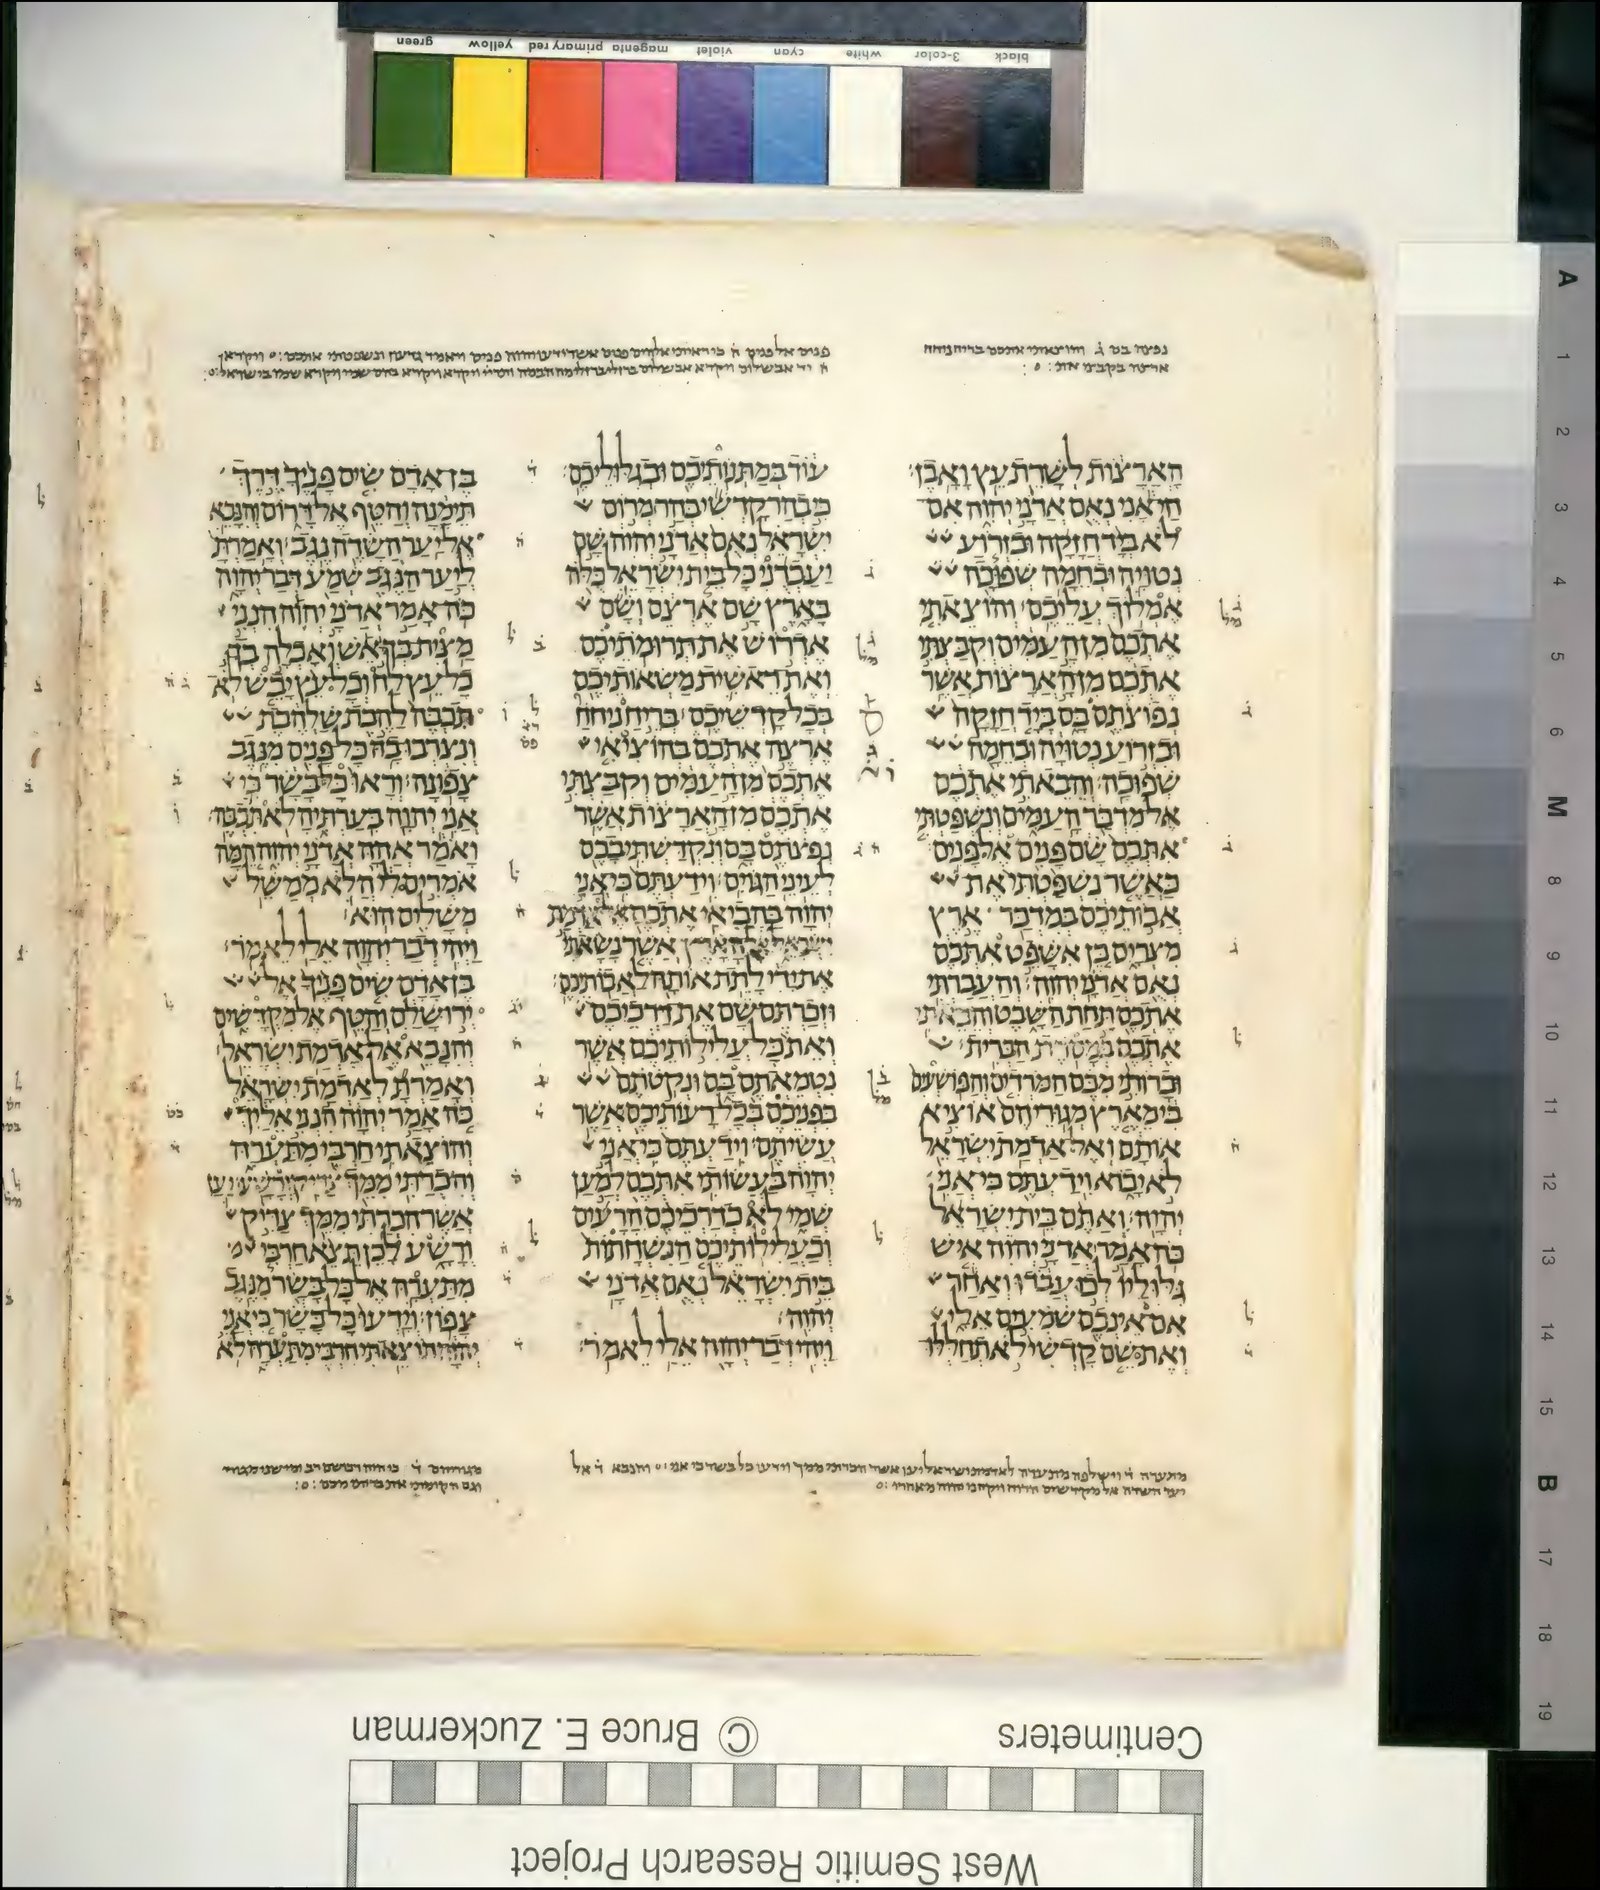 green yellow primary red magenta violet cyan white 3-color black
הארצות לשרת עץ ואבן׃
חי אני נאם אדני יהוה אם
לא ביד חזקה ובזרוע
נטויה ובחמה שפוכה
אמלוך עליכם׃ והוצאתי
אתכם מן העמים וקבצתי
אתכם מן הארצות אשר
נפוצתם בם ביד חזקה
ובזרוע נטויה ובחמה
שפוכה׃ והבאתי אתכם
אל מדבר העמים ונשפטתי
אתכם שם פנים אל פנים׃
כאשר נשפטתי את
אבותיכם במדבר ארץ
מצרים כן אשפט אתכם
נאם אדני יהוה׃ והעברתי
אתכם תחת השבט והבאתי
אתכם במסרת הברית׃
וברותי מכם המרדים והפושעים
בי מארץ מגוריהם אוציא
אותם ואל אדמת ישראל
לא יבוא וידעתם כי אני
יהוה׃ ואתם בית ישראל
כה אמר אדני יהוה איש
גלוליו לכו עבדו ואחר
אם אינכם שמעים אלי
ואת שם קדשי לא תחללו
עוד במתנותיכם ובגלוליכם׃
כי בהר קדשי בהר מרום
ישראל נאם אדני יהוה שם
יעבדני כל בית ישראל כלה
בארץ שם ארצם ושם
אדרוש את תרומתיכם
ואת ראשית משאותיכם
בכל קדשיכם׃ בריח ניחח
ארצה אתכם בהוציאי
אתכם מן העמים וקבצתי
אתכם מן הארצות אשר
נפצתם בם ונקדשתי בכם
לעיני הגוים׃ וידעתם כי אני
יהוה בהביאי אתכם אל אדמת
ישראל אל הארץ אשר נשאתי
את ידי לתת אותה לאבותיכם׃
וזכרתם שם את דרכיכם
ואת כל עלילותיכם אשר
נטמאתם בם ונקטתם
בפניכם בכל רעותיכם אשר
עשיתם׃ וידעתם כי אני
יהוה בעשותי אתכם למען
שמי לא כדרכיכם הרעים
וכעלילותיכם הנשחתות
בית ישראל נאם אדני
יהוה׃
ויהי דבר יהוה אלי לאמר׃
בן אדם שים פניך דרך
תימנה והטף אל דרום והנבא
אל יער השדה נגב׃ ואמרת
ליער הנגב שמע דבר יהוה
כה אמר אדני יהוה הנני
מצית בך אש ואכלה בך
כל עץ לח וכל עץ יבש לא
תכבה להבת שלהבת
ונצרבו בה כל פנים מנגב
צפונה׃ וראו כל בשר כי
אני יהוה בערתיה לא תכבה׃
ואמר אהה אדני יהוה המה
אמרים לי הלא ממשל
משלים הוא׃
ויהי דבר יהוה אלי לאמר׃
בן אדם שים פניך אל
ירושלם והטף אל מקדשים
והנבא אל אדמת ישראל׃
ואמרת לאדמת ישראל
כה אמר יהוה הנני אליך
והוצאתי חרבי מתערה
והכרתי ממך צדיק ורשע׃ יען
אשר הכרתי ממך צדיק
ורשע לכן תצא חרבי
מתערה אל כל בשר מנגב
צפון׃ וידעו כל בשר כי אני
יהוה הוצאתי חרבי מתערה לא
Centimeters © Bruce E. Zuckerman
West Semitic Research Project
A 1 2 3 4 5 6 M 8 9 10 11 12 13 14 15 B 17 18 19